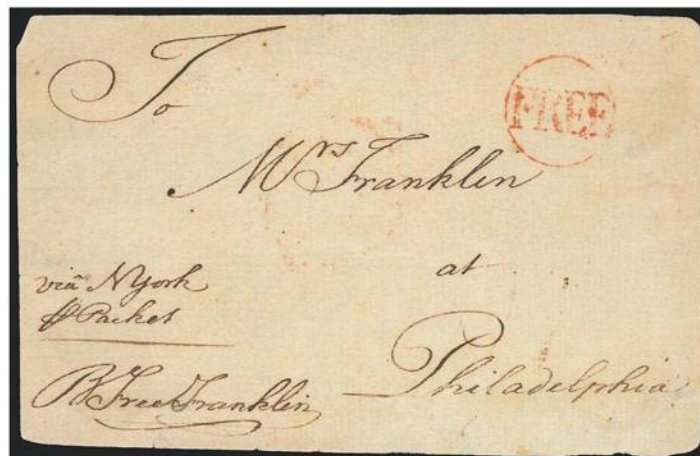 To
FREE
Mrs Franklin
at
Philadelphia
via N York
⅌ Packet
B Free Franklin